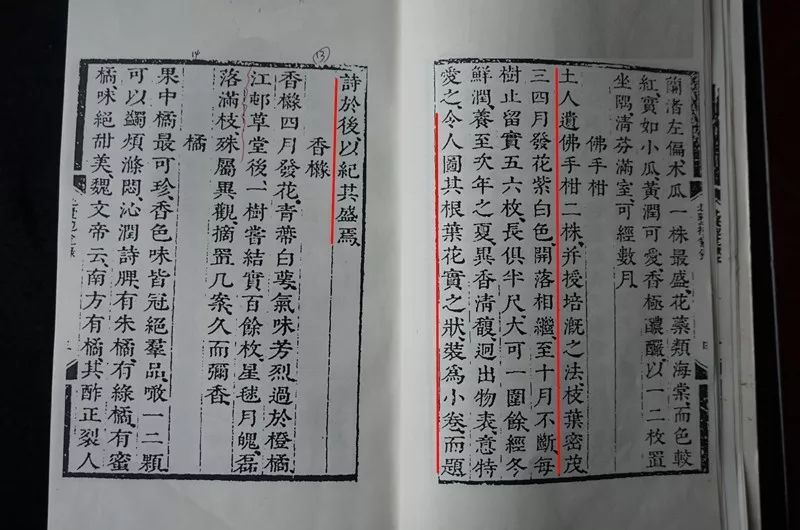 蘭渚左偏木瓜一株最盛花蘂類海棠而色較
紅實如小瓜黃潤可愛香極濃釅以一二枚置
坐隅清芬滿室可經數月
佛手柑
土人遺佛手柑二株并授培漑之法枝葉密茂
三四月發花紫白色開落相繼至十月不斷每
樹止留實五六枚長俱半尺大可一圍餘經冬
鮮潤養至次年之夏異香清馥迥出物表意特
愛之令人圖其根葉花實之狀裝爲小卷而題
⑬
詩於後以紀其盛焉
香櫞
香櫞四月發花青蒂白蕚氣味芳烈過於橙橘
江邨草堂後一樹嘗結實百餘枚星毬月魄磊
落滿枝殊屬異觀摘置几案久而彌香
14
橘
果中橘最可珍香色味皆冠絕羣品噉一二顆
可以蠲煩滌悶沁潤詩脾有朱橘有綠橘有蜜
橘味絕甜美魏文帝云南方有橘其酢正裂人